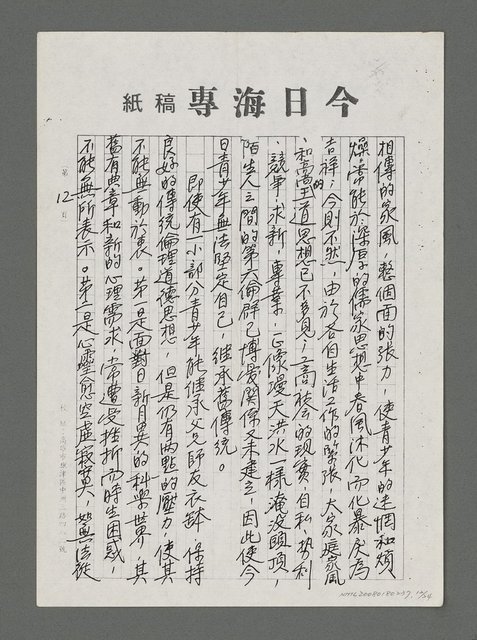 今日海專 稿紙
相傳的家風，整個面的張力，使青少年的迷惘和煩
燥，當能於深厚的儒家思想中春風沐化而化暴戾為
吉祥；今則不然，由於各自生活工作的緊張，大家庭家風
和高的王道思想已不多見；工商社會的現實自私，勢利
，競爭，求新，專業，正像漫天洪水一樣淹沒頭頂，
陌生人之間的第六倫群己博愛關係又未建立，因此使今
日青少年無法堅定自己，繼承舊傳統。
即使有一小部分青少年能繼承父兄師友衣缽，保持
良好的傳統倫理道德思想，但是仍有兩點的壓力，使其
不能無動於衷。第一是面對日新月異的科學世界，其
舊有典章和新的心理需求，常遭受挫折而時生困惑，
不能無所表示。第二是心靈愈空虛寂寞，無法從
第12頁
校址：高雄市旗津區中洲三路四八二號
NMTL20080180237, 12/24